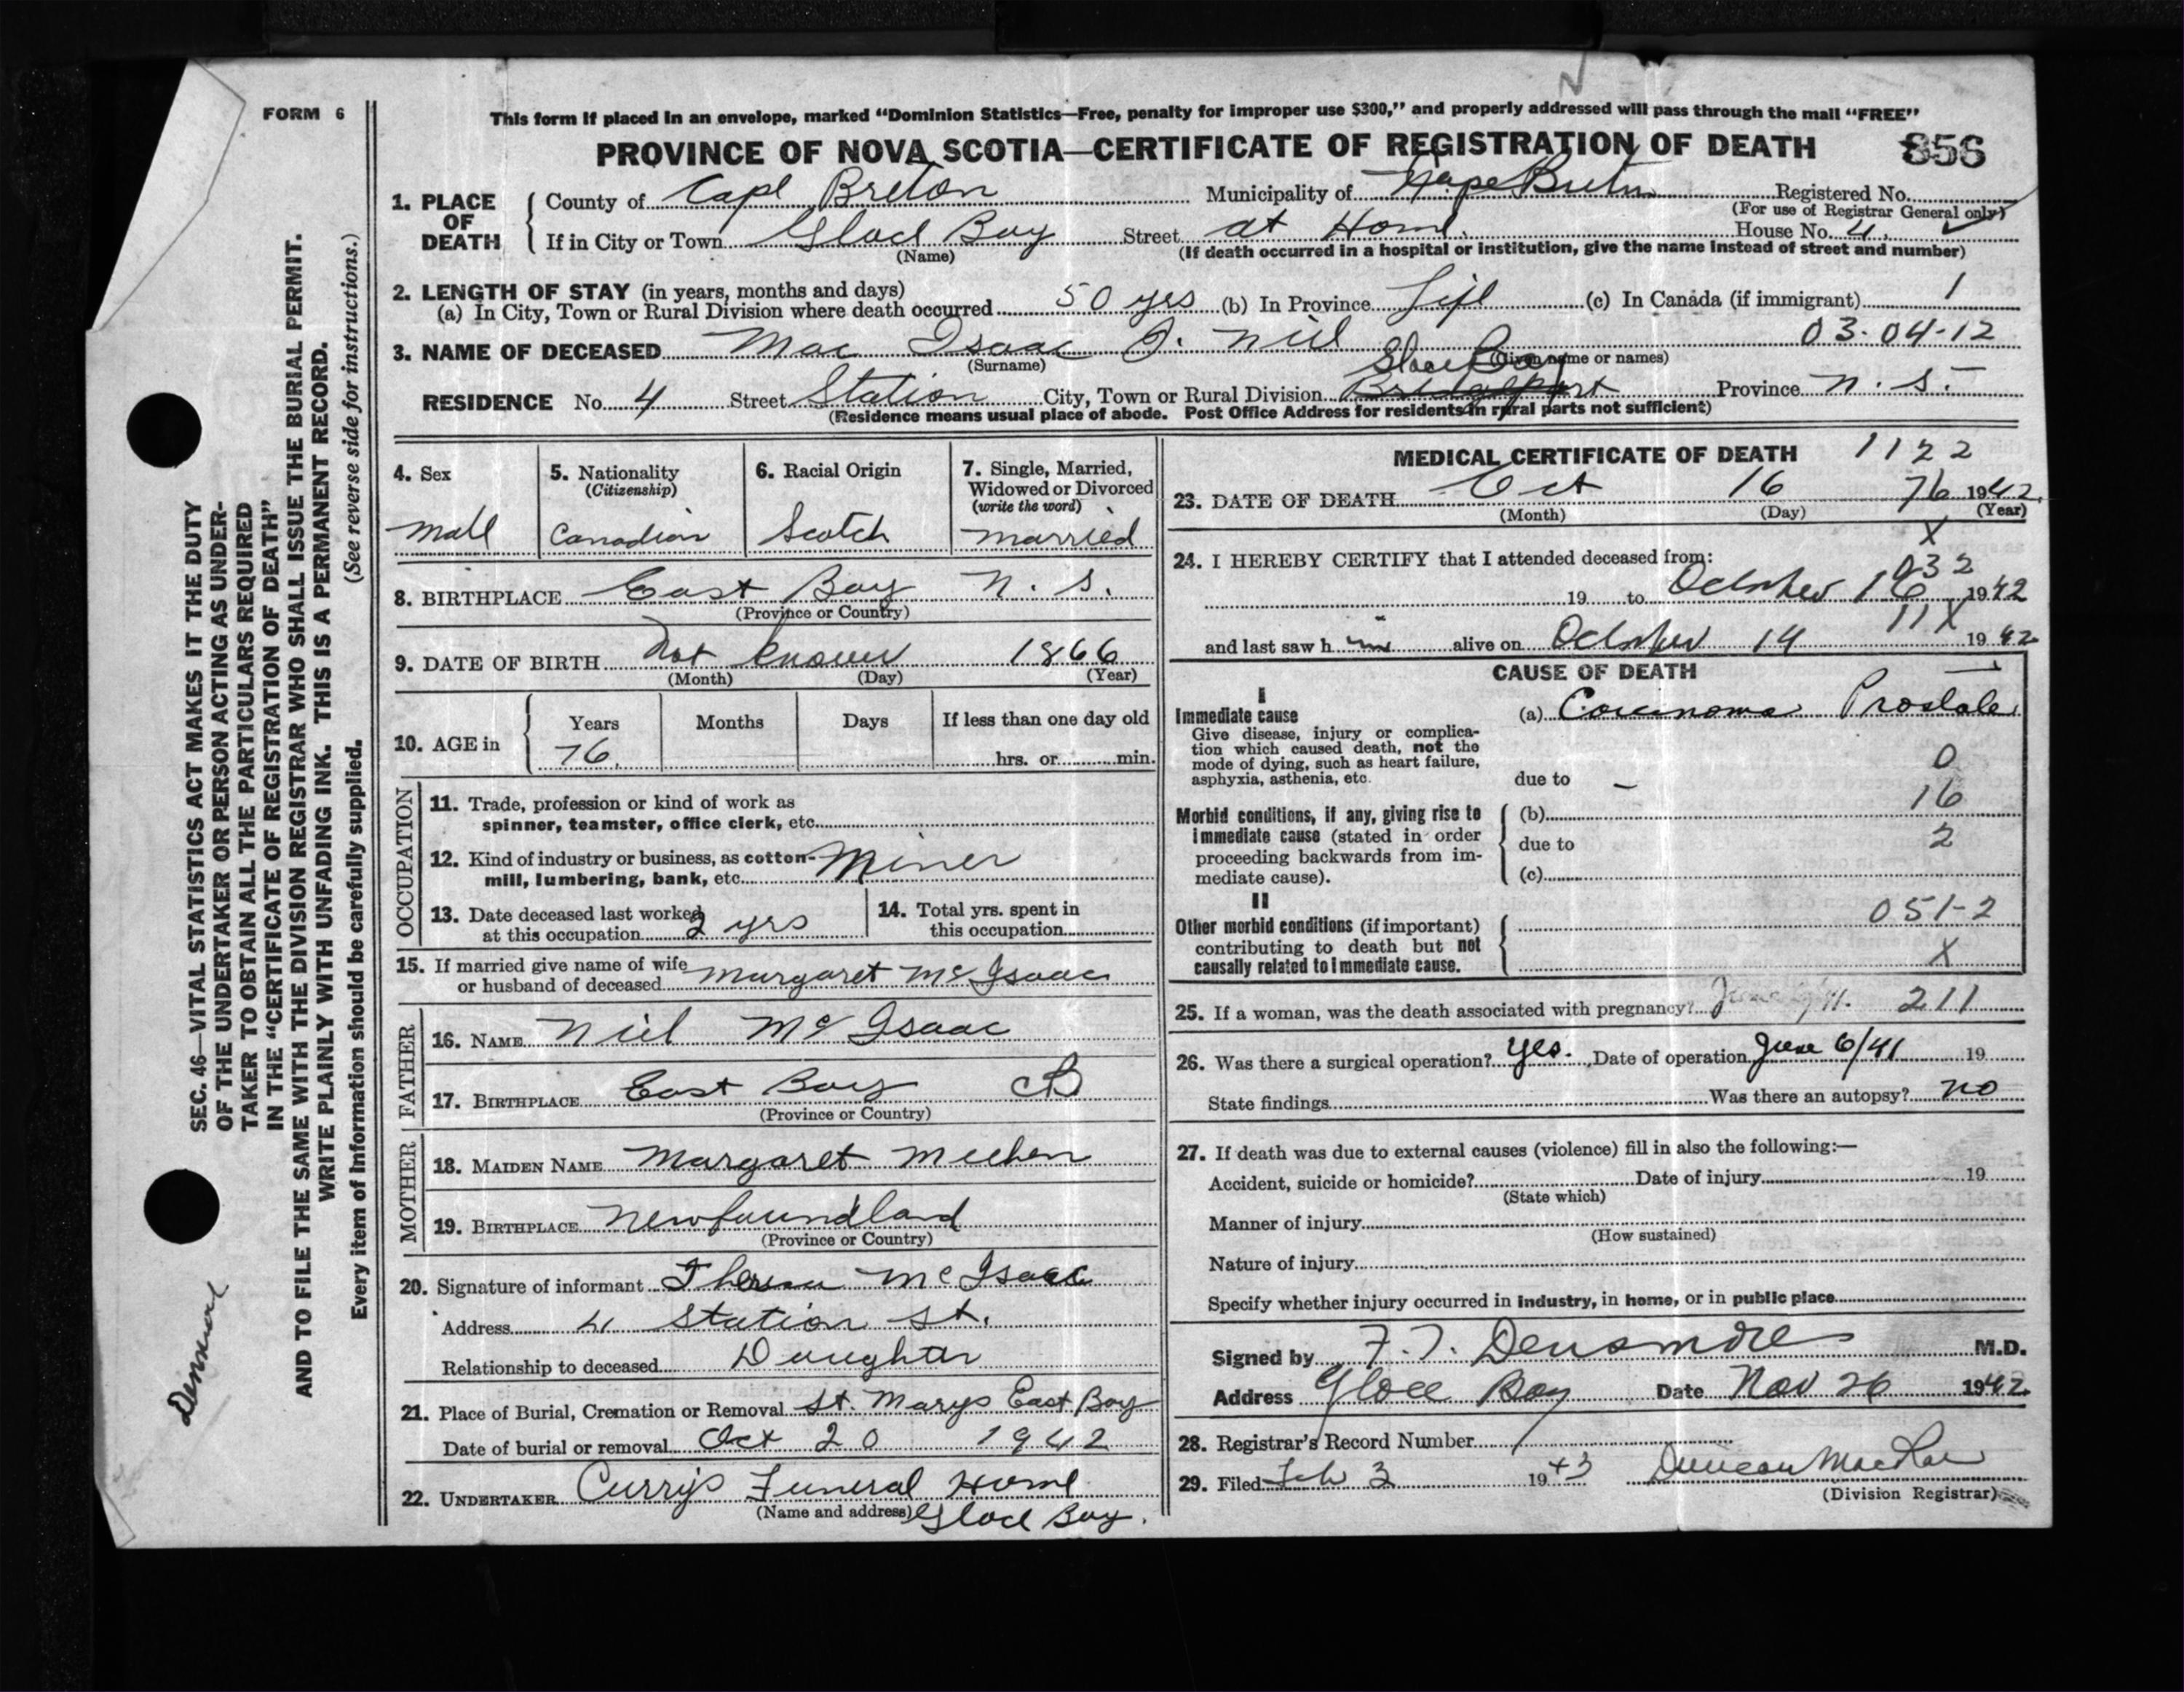 FORM 6
This form if placed in an envelope, marked "Dominion Statistics—Free, penalty for improper use $300," and properly addressed will pass through the mail "FREE"
PROVINCE OF NOVA SCOTIA—CERTIFICATE OF REGISTRATION OF DEATH 856
1. PLACE OF DEATH
County of Cape Breton Municipality of Cape Breton Registered No.
(For use of Registrar General only)
If in City or Town Glace Bay Street at Home. House No. 4.
(Name) (If death occurred in a hospital or institution, give the name instead of street and number)
2. LENGTH OF STAY (in years, months and days)
(a) In City, Town or Rural Division where death occurred 50 yrs (b) In Province Life (c) In Canada (if immigrant) 1
03-04-12
3. NAME OF DECEASED Mac Isaac J. Niel
(Surname) (Given name or names)
Glace Bay
RESIDENCE No. 4 Street Station City, Town or Rural Division Bridgeport Province N.S.
(Residence means usual place of abode. Post Office Address for residents in rural parts not sufficient)
4. Sex
Male
5. Nationality
(Citizenship)
Canadian
6. Racial Origin
Scotch
7. Single, Married,
Widowed or Divorced
(write the word)
Married
8. BIRTHPLACE East Bay N.S.
(Province or Country)
9. DATE OF BIRTH Not known 1866
(Month) (Day) (Year)
10. AGE in
Years Months Days If less than one day old
76. hrs. or min.
OCCUPATION
11. Trade, profession or kind of work as
spinner, teamster, office clerk, etc.
12. Kind of industry or business, as cotton-
mill, lumbering, bank, etc. Miner
13. Date deceased last worked
at this occupation 2 yrs
14. Total yrs. spent in
this occupation
15. If married give name of wife
or husband of deceased Margaret McIsaac
FATHER
16. NAME Niel McIsaac
17. BIRTHPLACE East Bay CB
(Province or Country)
MOTHER
18. MAIDEN NAME Margaret Meehen
19. BIRTHPLACE Newfoundland
(Province or Country)
20. Signature of informant Theresa McIsaac
Address 4 Station St.
Relationship to deceased Daughter
21. Place of Burial, Cremation or Removal St. Marys East Bay
Date of burial or removal Oct 20 1942
22. UNDERTAKER Currys Funeral Home
(Name and address) Glace Bay.
MEDICAL CERTIFICATE OF DEATH 1122
23. DATE OF DEATH Oct 16 76 1942.
(Month) (Day) (Year)
X
24. I HEREBY CERTIFY that I attended deceased from:
032
19 to October 16 1942
11X
and last saw him alive on October 14 1942
CAUSE OF DEATH
I
Immediate cause
Give disease, injury or complica-
tion which caused death, not the
mode of dying, such as heart failure,
asphyxia, asthenia, etc.
(a) Carcinoma Prostate
0
due to –
16
Morbid conditions, if any, giving rise to
immediate cause (stated in order
proceeding backwards from im-
mediate cause).
(b)
due to 2
(c)
II
Other morbid conditions (if important)
contributing to death but not
causally related to immediate cause.
051-2
X
25. If a woman, was the death associated with pregnancy? 211
26. Was there a surgical operation? Yes. Date of operation June 6/41 19
State findings Was there an autopsy? no
27. If death was due to external causes (violence) fill in also the following:—
Accident, suicide or homicide? Date of injury 19
(State which)
Manner of injury
(How sustained)
Nature of injury
Specify whether injury occurred in industry, in home, or in public place
Signed by F.T. Densmore M.D.
Address Glace Bay Date Nov 26 1942.
28. Registrar's Record Number
29. Filed Feb 3 1943 Duncan MacRae
(Division Registrar)
SEC. 46—VITAL STATISTICS ACT MAKES IT THE DUTY
OF THE UNDERTAKER OR PERSON ACTING AS UNDER-
TAKER TO OBTAIN ALL THE PARTICULARS REQUIRED
IN THE "CERTIFICATE OF REGISTRATION OF DEATH"
AND TO FILE THE SAME WITH THE DIVISION REGISTRAR WHO SHALL ISSUE THE BURIAL PERMIT.
WRITE PLAINLY WITH UNFADING INK. THIS IS A PERMANENT RECORD.
Every item of information should be carefully supplied. (See reverse side for instructions.)